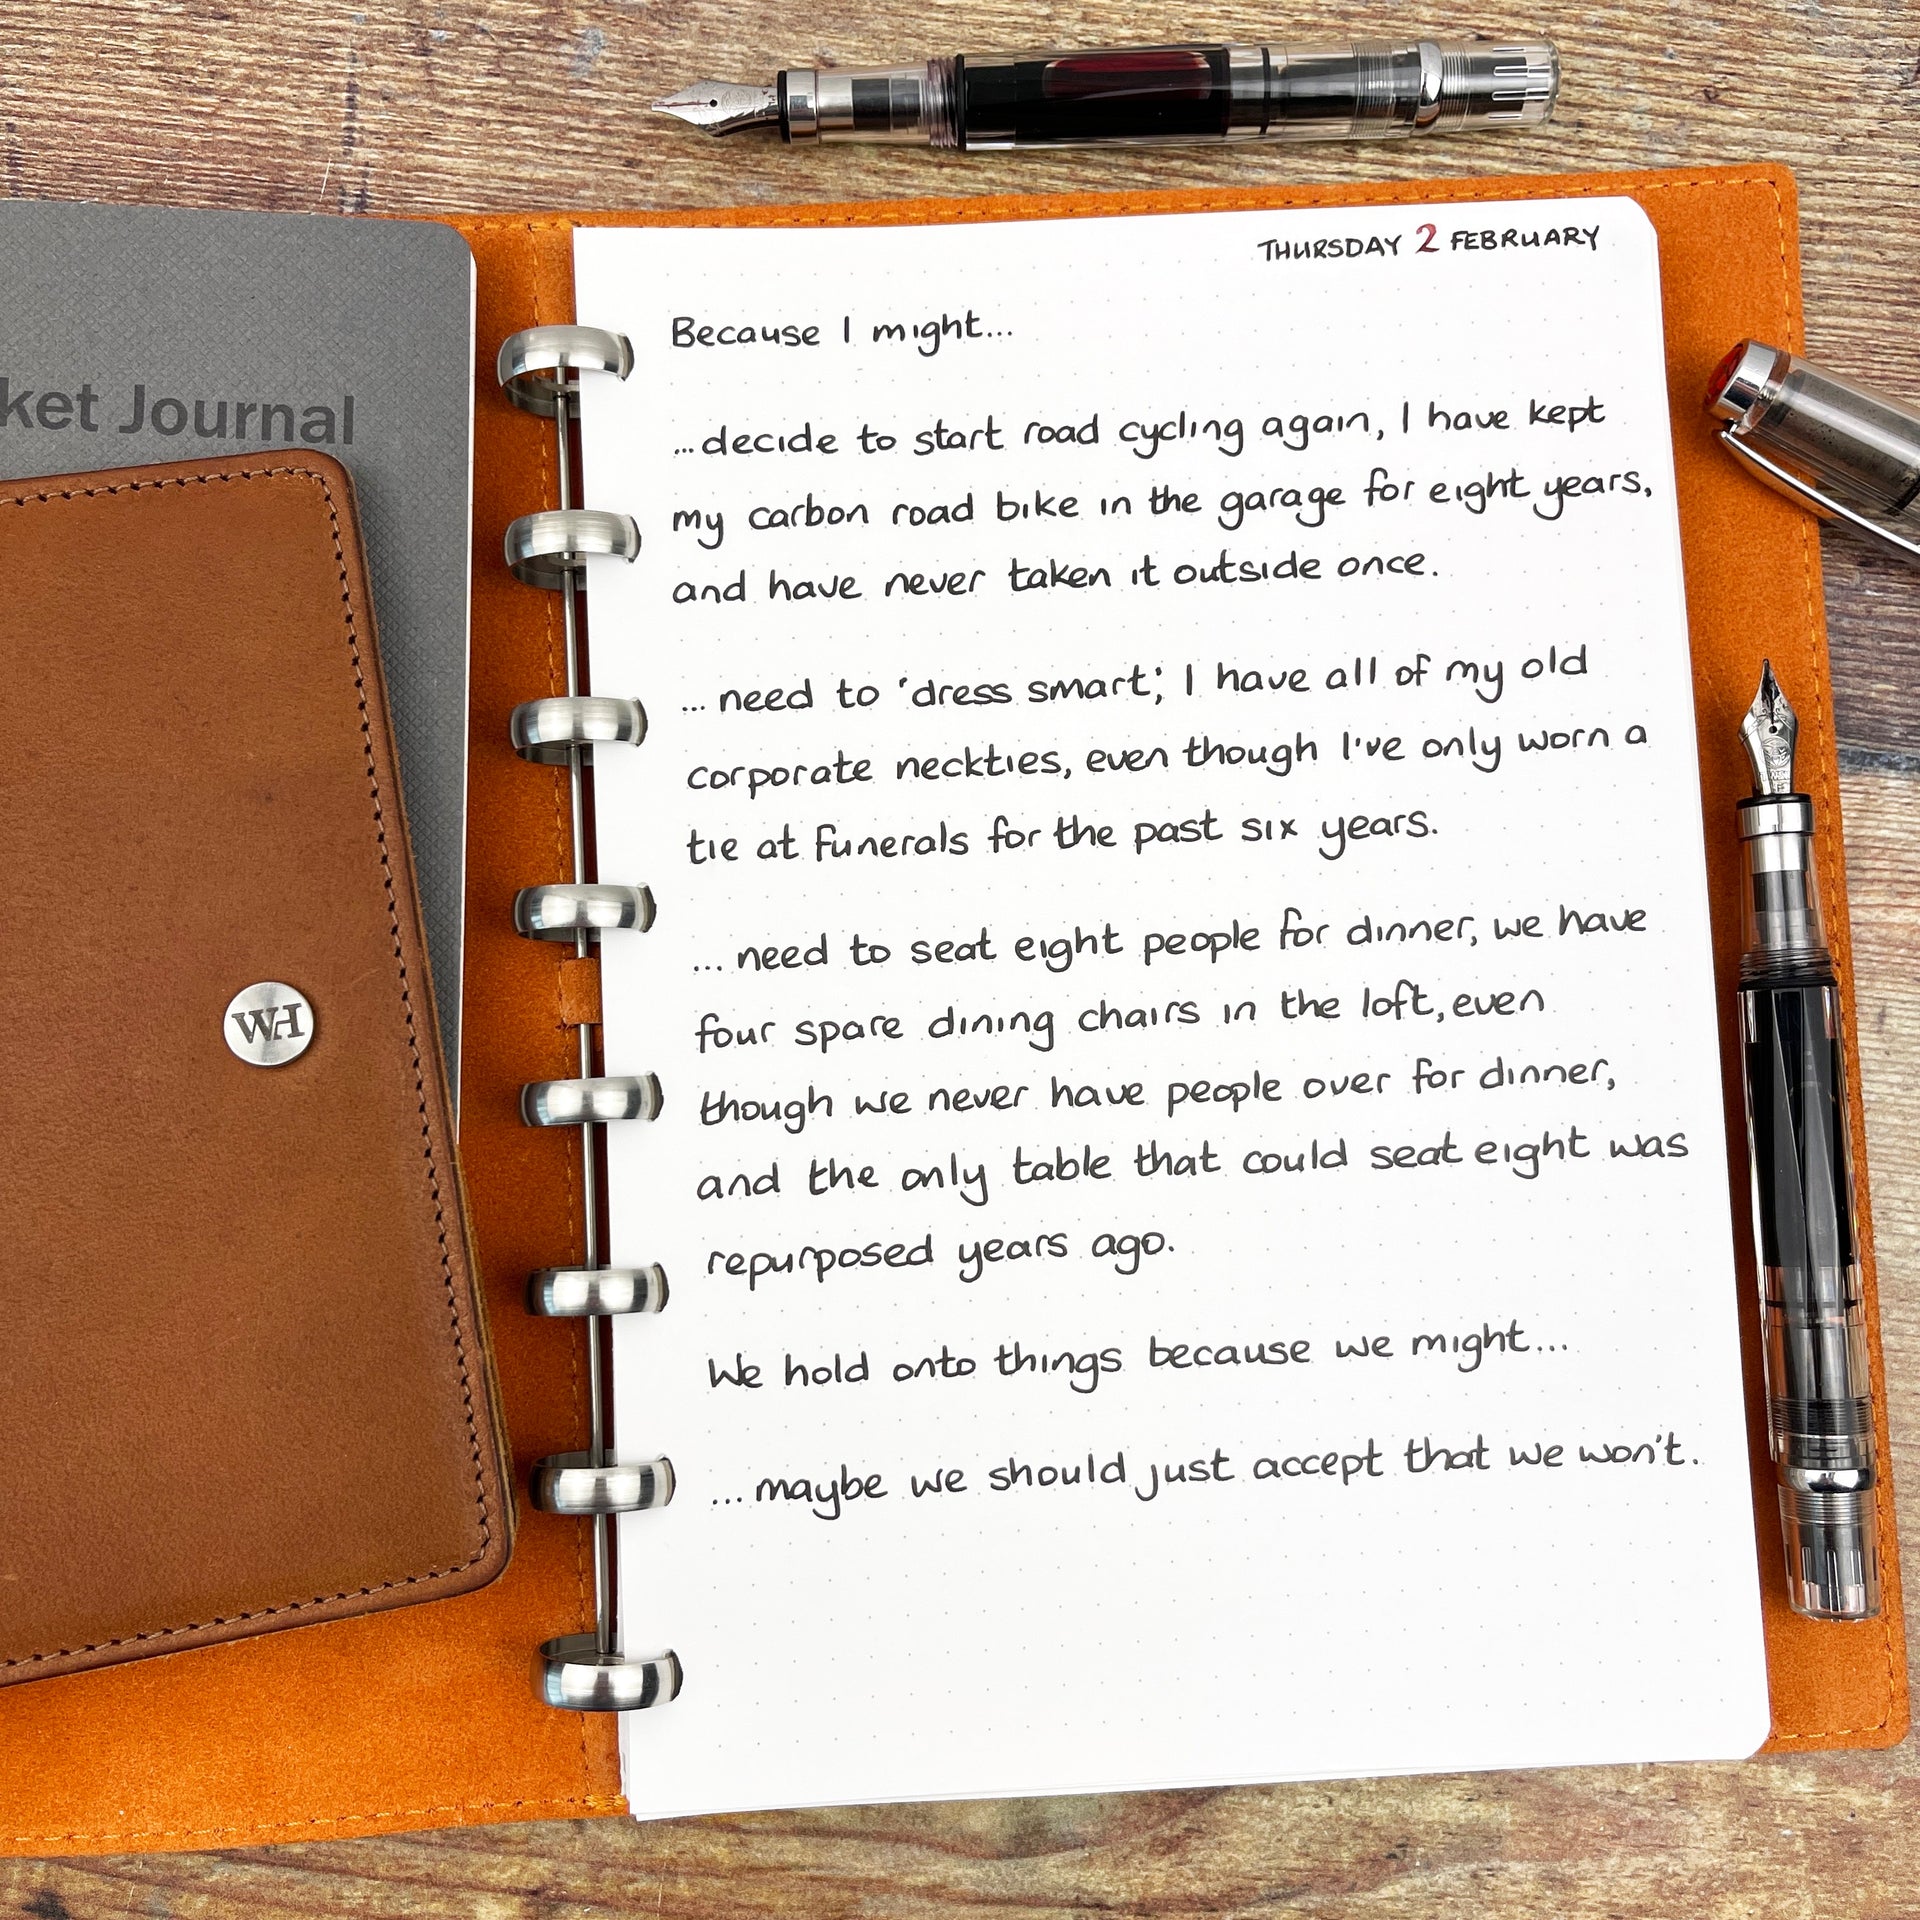 THURSDAY 2 FEBRUARY
Because I might...
...decide to start road cycling again, I have kept
my carbon road bike in the garage for eight years,
and have never taken it outside once.
... need to 'dress smart', I have all of my old
corporate neckties, even though I've only worn a
tie at funerals for the past six years.
... need to seat eight people for dinner, we have
four spare dining chairs in the loft, even
though we never have people over for dinner,
and the only table that could seat eight was
repurposed years ago.
We hold onto things because we might...
... maybe we should just accept that we won't.
ket Journal
WH